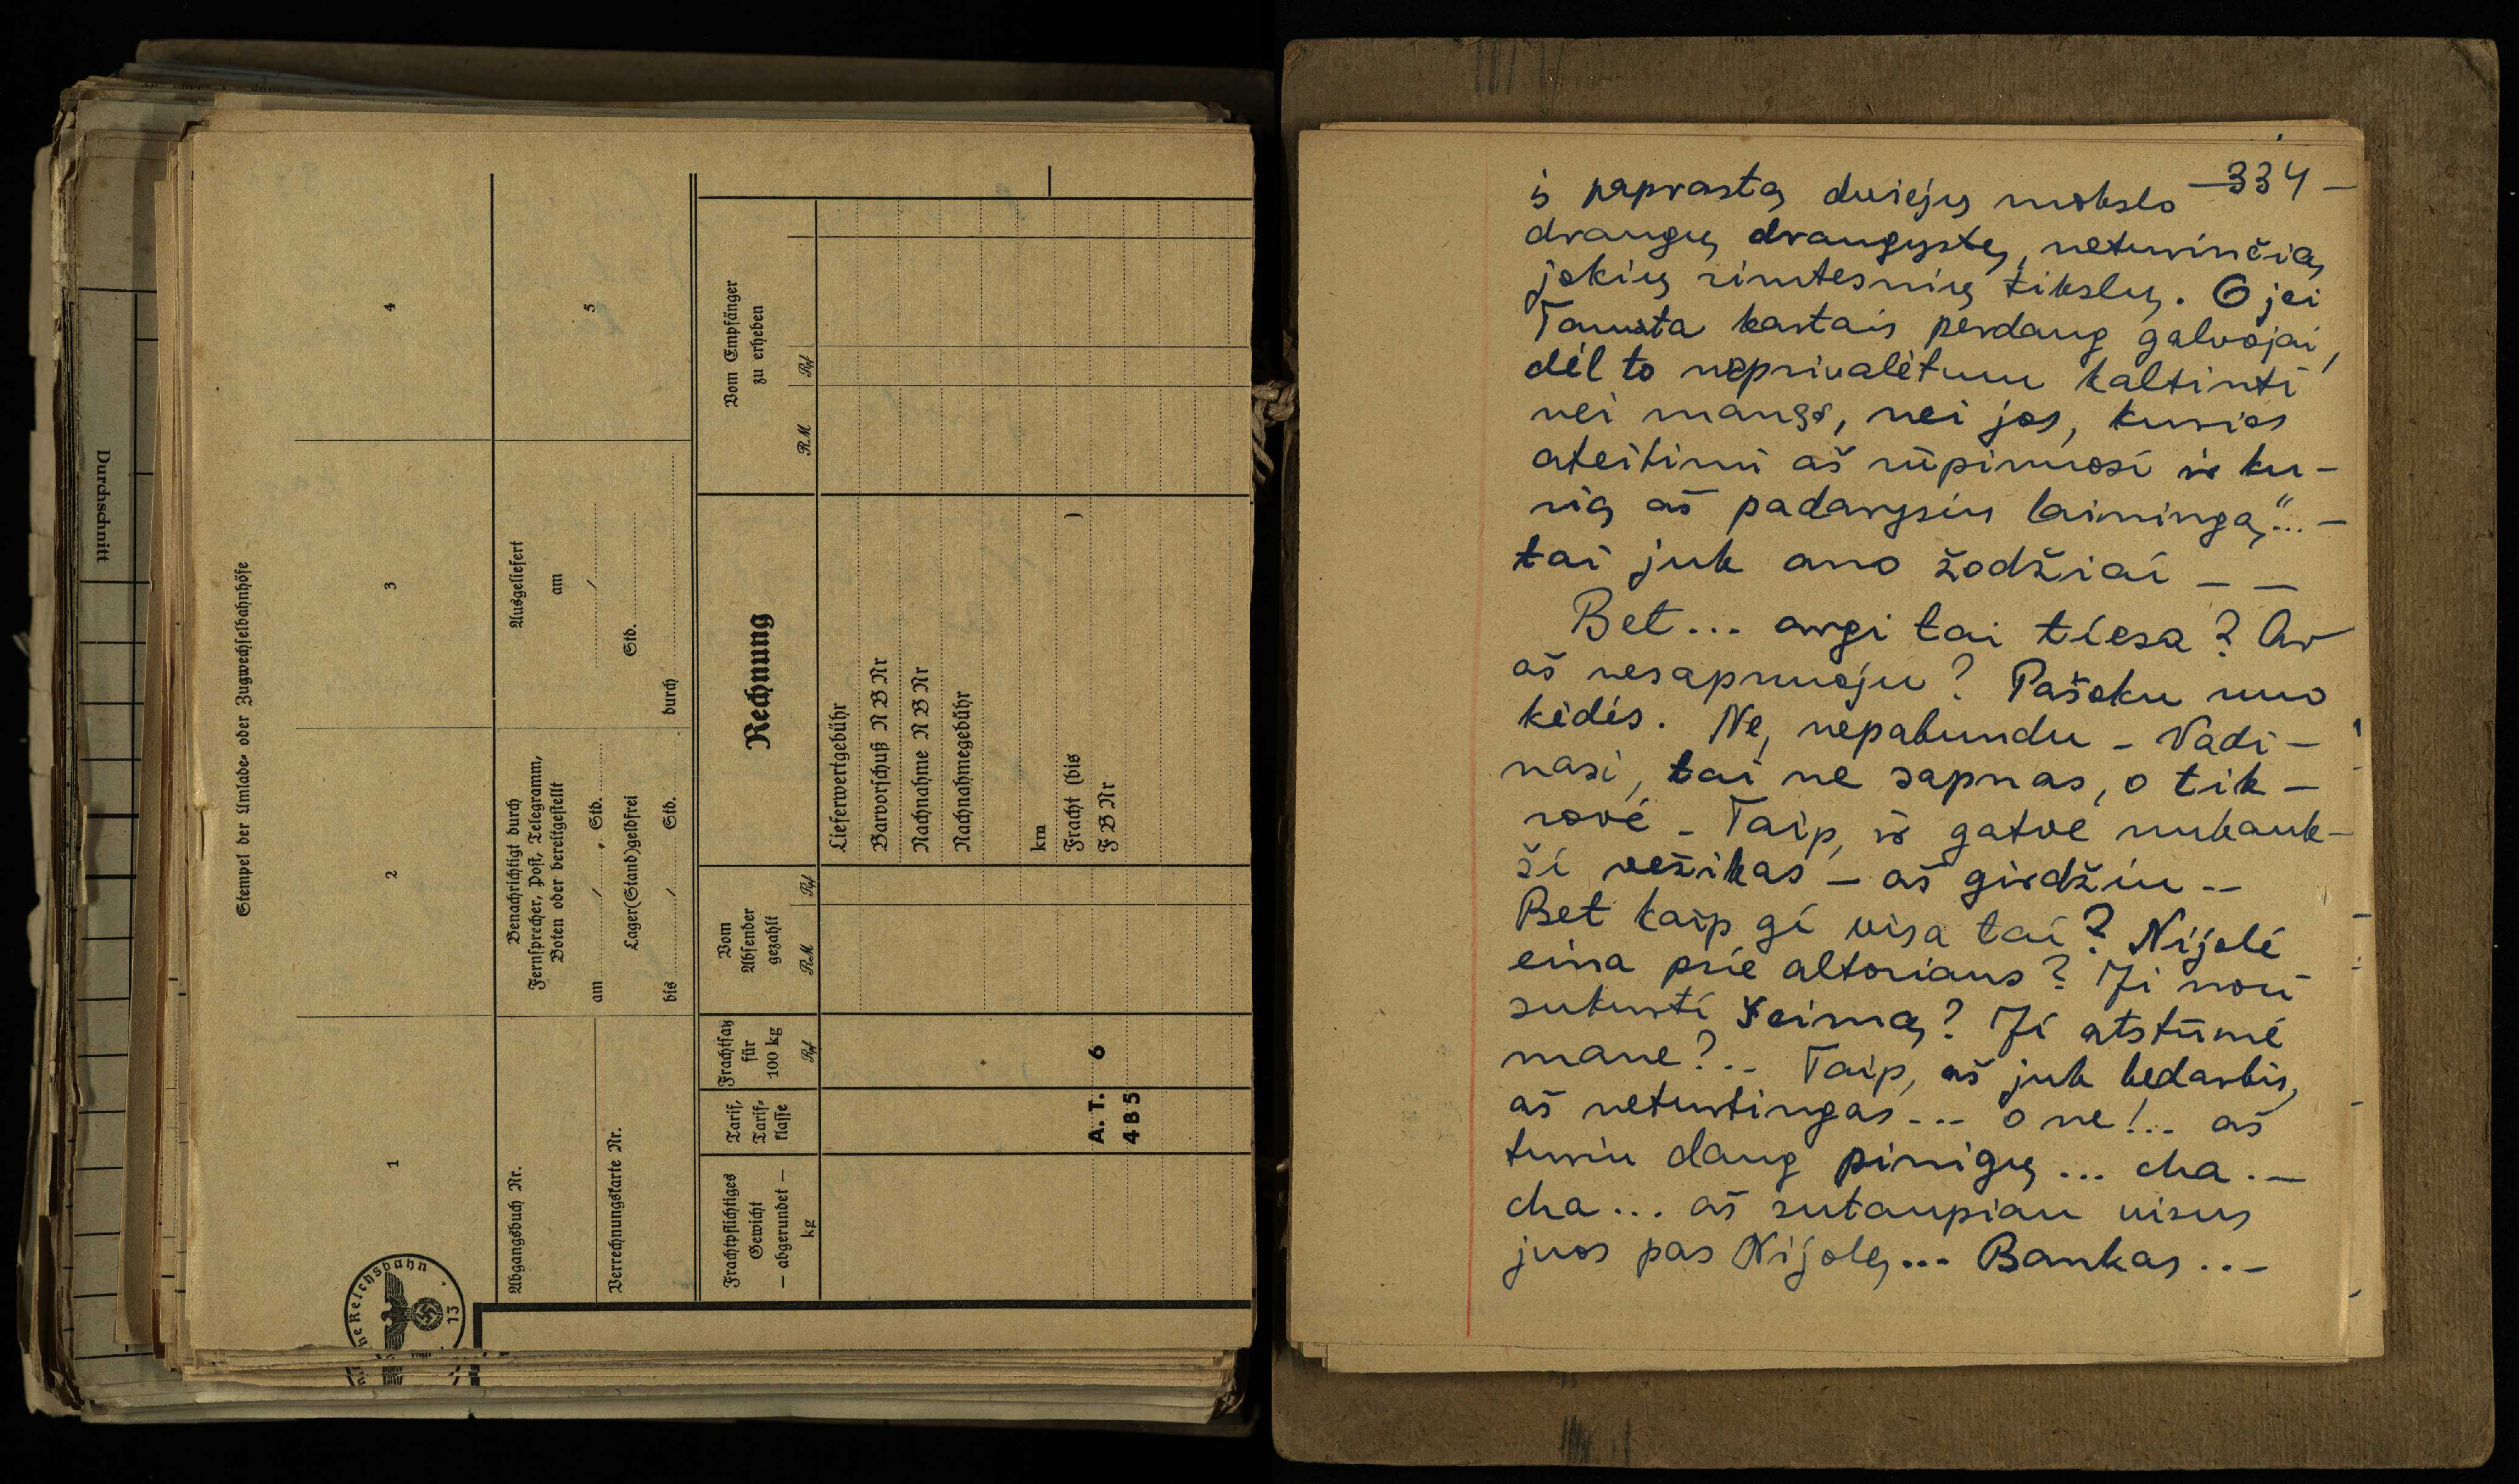 Durchschnitt
Stempel der Umlade= oder Zugwechselbahnhöfe
1
2
3
4
Abgangsbuch Nr.
Verrechnungskarte Nr.
Benachrichtigt durch
Fernsprecher, Post, Telegramm,
Boten oder bereitgestellt
am / , Std.
Lager(Stand)geldfrei
bis / Std.
Ausgeliefert
am
/
Std.
durch
5
Frachtpflichtiges
Gewicht
— abgerundet —
kg
Tarif,
Tarif=
klasse
Frachtsatz
für
100 kg
Rpf
Vom
Absender
gezahlt
RM Rpf
Rechnung
Vom Empfänger
zu erheben
RM Rpf
Lieferwertgebühr
Barvorschuß N B Nr
Nachnahme N B Nr
Nachnahmegebühr
km
Fracht (bis )
F B Nr
A. T. 6
4 B 5
ne Reichsbahn
13
—334—
iš paprastą dviejų mokslo
draugų draugystę, neturinčią
jokių rimtesnių tikslų. O jei
Tamsta kartais perdaug galvojai,
dėl to neprivalėtum kaltinti
nei manęs, nei jos, kurios
ateitimi aš rūpinuosi ir ku-
rią aš padarysiu laimingą"... —
tai juk ano žodžiai — —
Bet... argi tai tiesa? Ar
aš nesapnuoju? Pašoku nuo
kėdės. Ne, nepabundu – Vadi-
nasi, tai ne sapnas, o tik-
rovė – Taip, iš gatvė nukauk-
ši vežikas – aš girdžiu --
Bet kaip gi visa tai? Nijolė
eina prie altoriaus? Ji nori
sukurti šeimą? Ji atstūmė
mane?.. Taip, aš juk bedarbis,
aš neturtingas... o ne!.. aš
turiu daug pinigų... cha.—
cha... aš sutaupiau visus
juos pas Nijolę... Bankas..—